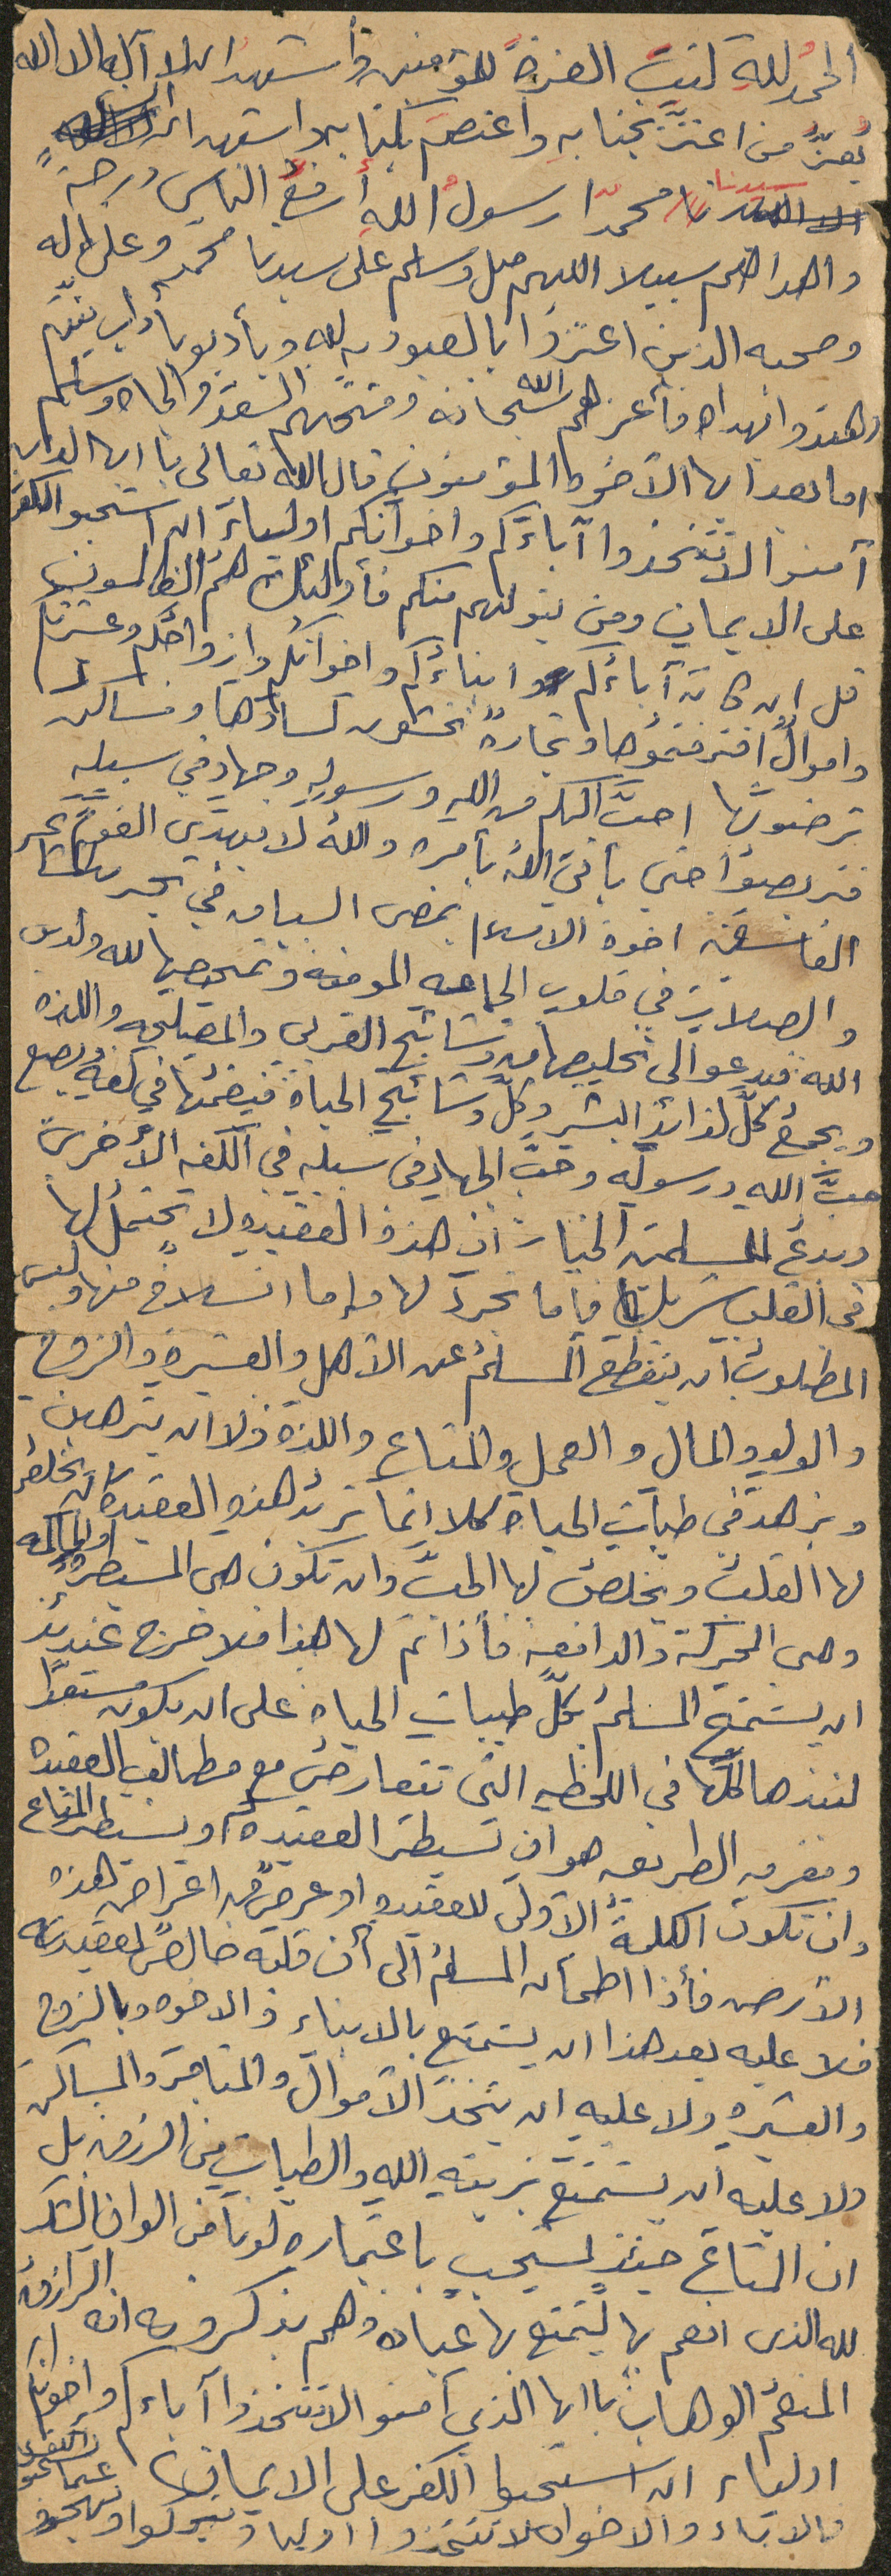 الحمد لله كتب العزة للمؤمنين وأشهد ان لا آله الا الله
يُعزّ من اعتزّ بجنابه واعتصم بكتابه واشهد ان
سيدنا محمدًا رسولُ اللهِ أرفعُ الناس درجةً
واهداهم سبيلا اللهم صل وسلم على سيدنا محمد وعلى اله
وصحبه الذين اعتزوا بالعبودية لله وتأدبوا بأداب نبيّهم
واهتدوا بهداه فأعزهم الله سبحانه ومنحهم السؤدد والجاه وسلم
اما بعد ايها الأخوة المؤمنون قال الله تعالى يا ايها الذين
آمنوا لا تتخذوا آباءَكم واخوانكم اولياءَ ان استحبوا الكفر
على الايمان ومن يتولهم منكم فأولئك هم الظالمون
قل ان كان آباءُكم وابناءُكم واخوانُكم وازواجُكم وعشيرتكم
واموالٌ اقترفتموُها وتجارةٌ تخشون كسادَها ومساكن
ترضونَها احبَّ اليكم من اللهِ ورسولِهِ وجهادٍ في سبيلِه
فتربصوُا حتى يأتيَ اللهُ بأمره واللهُ لا يهدي القومَ
الفاسقين اخوة الاسلام يمضى السياق في تجريد المشاعر
والصلات في قلوب الجماعه المؤمنه وتمحيصها لله ولدين
الله فيدعو الى تخليصها من وشائج القربى والمصلحه واللذه
ويجمعُ كلَّ لذائذِ البشر وكلَّ وشائجِ الحياة فيضعُها في كفةٍ ويضع
حبَّ الله ورسوله وحبَّ الجهاد في سبيله في الكفه الأخرى
ويدعُ للمسلمين الخيارَ ان هذه العقيده لا تحتملُ لها
في القلب شريكًا فإما تجردٌ لها وإما انسلاخٌ منها وليس
المطلوبُ ان ينقطع المسلمُ عن الأهل والعشيرة والزوج
والولد والمال والعمل والمتاع واللذة ولا ان يترهبن
ويزهد في طيبات الحياة كلا إنما تريدُ هذه العقيدة ان يخلص
لها القلبُ ويخلص لها الحبَّ وان تكون هي المسيطرة والحاكمه
وهي المحركة والدافعة فأذا تم لها هذا فلا حرج عندئذٍ
ان يستمتع المسلمُ بكلِّ طيبات الحياه على ان يكون مستعدًا
لنبذها كلِّها في اللحظه التي تتعارض مع مطالب العقيده
ومفرق الطريق هو ان تسيطر العقيدة او يسيطر المتاع
وان تكون الكلمةُ الأولى للعقيده او عرضٍ من اعراض هذه
الأرض فأذا اطمأن المسلمُ الى أن قلبه خالصٌ لعقيدته
فلا عليه بعد هذا ان يستمتع بالابناء والاخوه وبالزوج
والعشيره ولا عليه ان يتخذ الأموال والمتاجر والمساكن
ولا عليه ان يستمتع بزينةِ اللهِ والطيبات من الرزق بل
ان المتاعَ حينئذٍ لمستحبٌ باعتباره لونًا من الوان الشكر
لله الذى انعم بها ليتمتع بها عبادُه وهم يذكرون انه الرازقُ
المنعمُ الوهابُ يا ايها الذين آمنوا لا تتخذوا آباءكم واخوانكم
اولياء ان استحبوا الكفر على الايمان
فالاباء والاخوان لا تتخذوا اولياء